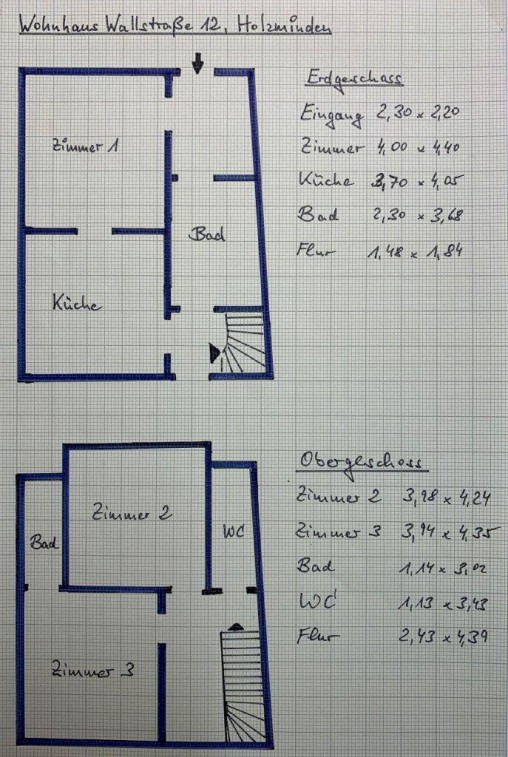 Wohnhaus Wallstraße 12, Holzminden
Erdgeschoss
Eingang 2,30 x 2,20
Zimmer 4,00 x 4,40
Küche 3,70 x 4,05
Bad 2,30 x 3,68
Flur 1,48 x 1,84
Zimmer 1
Bad
Küche
Obergeschoss
Zimmer 2 3,98 x 4,24
Zimmer 3 3,94 x 4,35
Bad 1,14 x 3,02
WC 1,13 x 3,43
Flur 2,43 x 4,39
Zimmer 2
Bad
WC
Zimmer 3